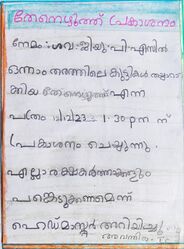 തേനെഴുത്ത് പ്രകാശനം
നേമം: ഗവ-യു-പി-എസിൽ
ഒന്നാം തരത്തിലെ കുട്ടികൾ തയ്യാറാ
ക്കിയ തേനെഴുത്ത് എന്ന
പത്രം 1:30 pm ന്
പ്രകാശനം ചെയ്യുന്നു.
എല്ലാ രക്ഷകർത്താക്കളും
പങ്കെടുക്കണമെന്ന്
ഹെഡ്മാസ്റ്റർ അറിയിച്ചു
അവന്തിക